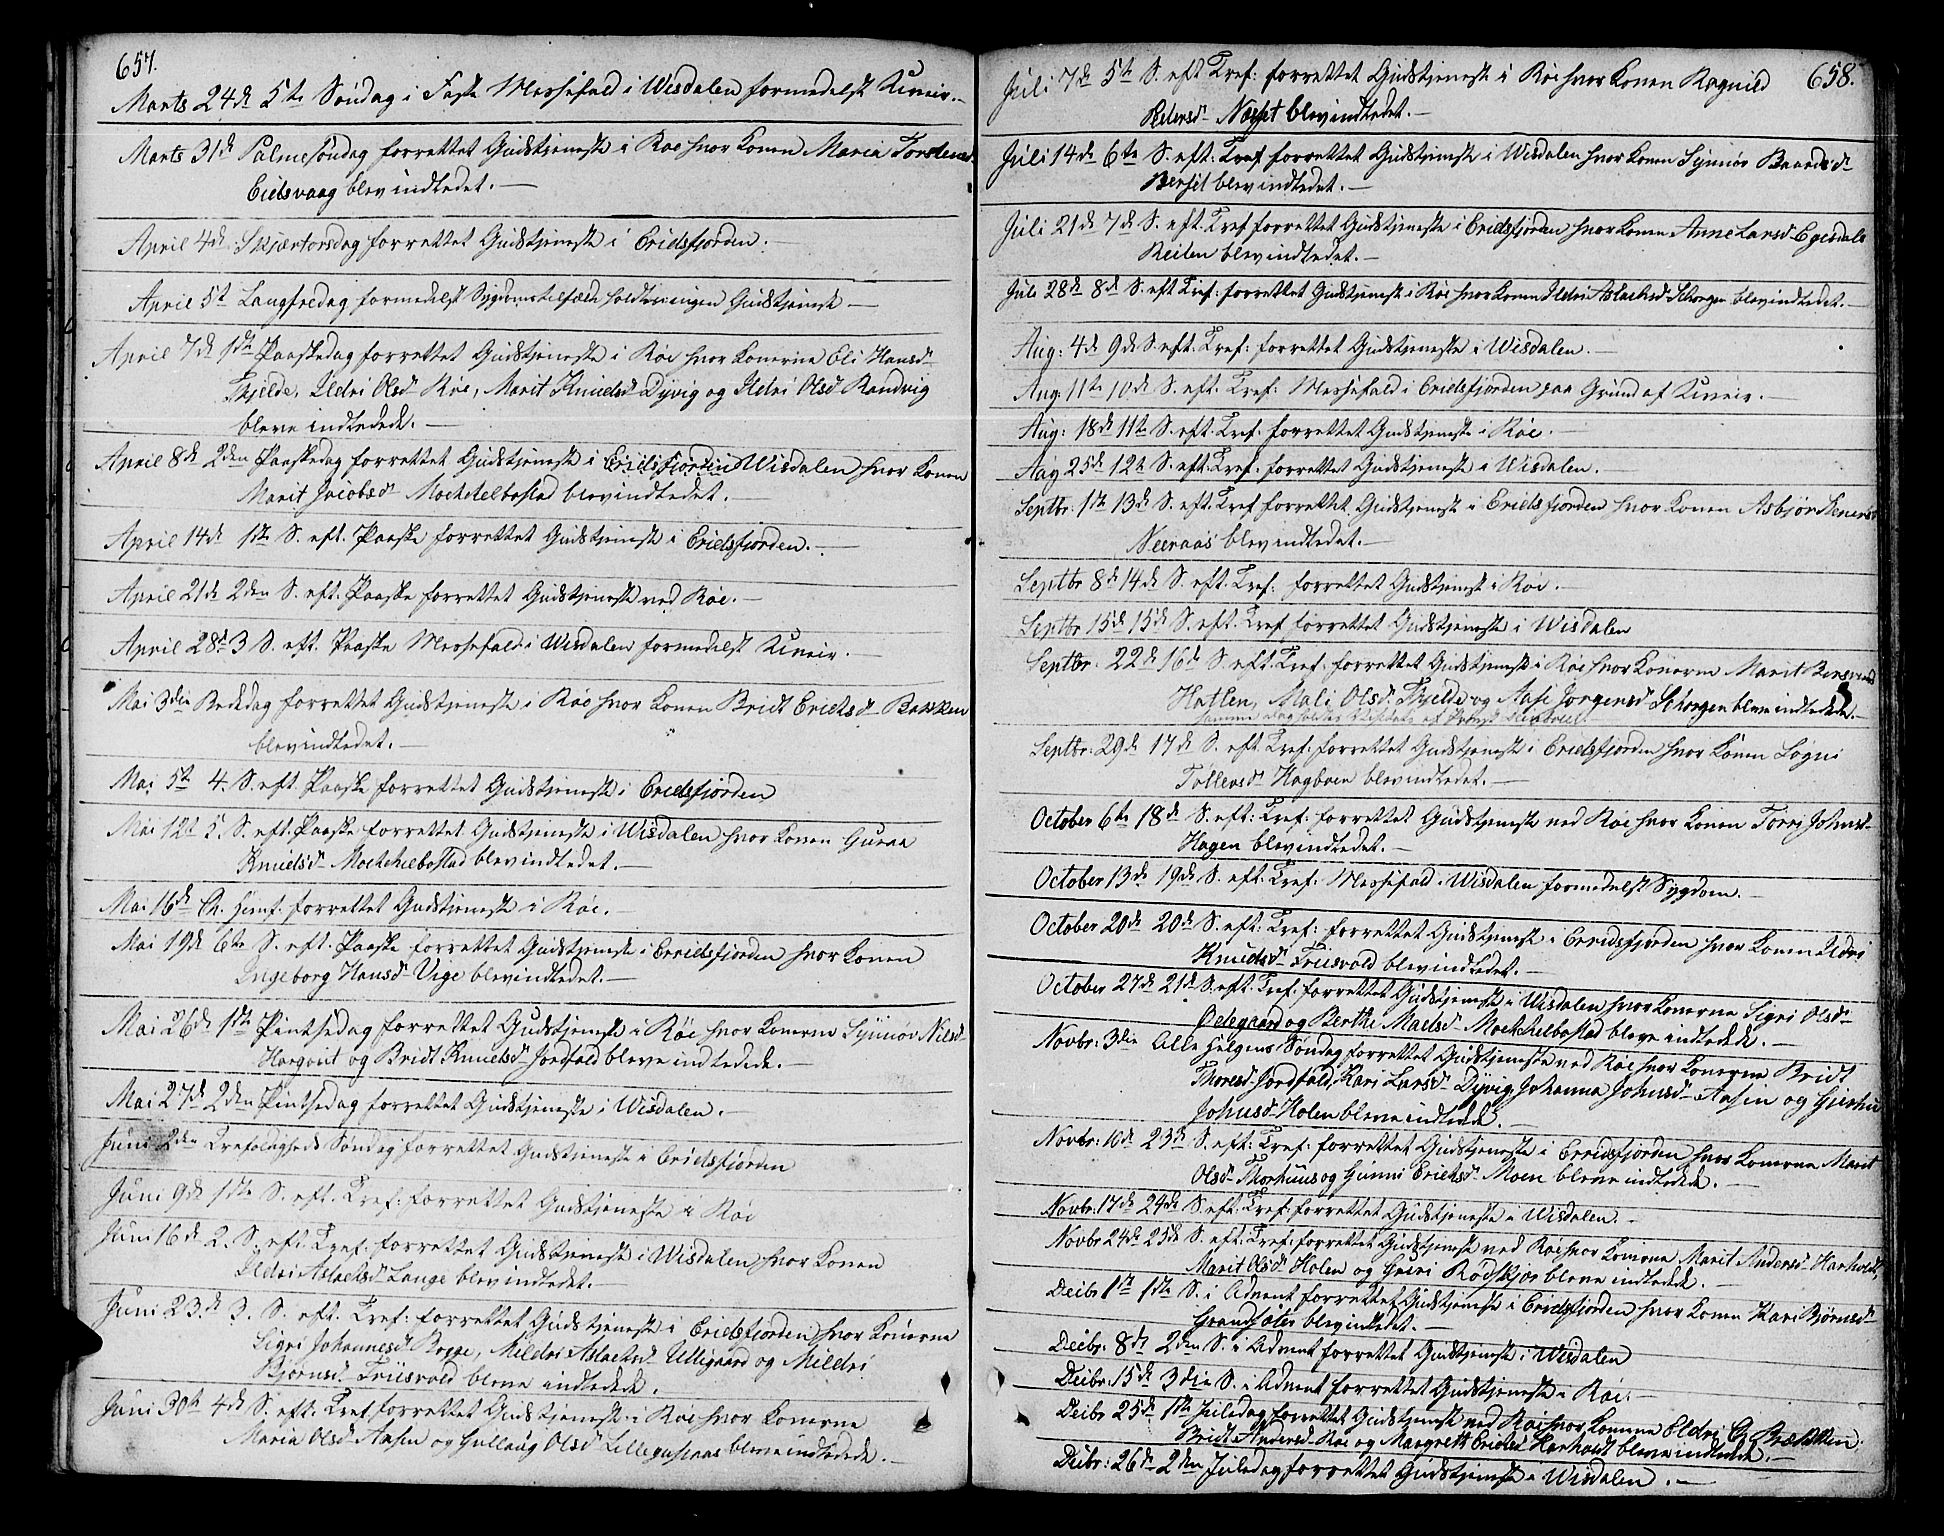 657.
Marts 24de 5te Søndag i Faste Messefald i Wisdalen formedelst Uveir.
Marts 31de Palmesøndag forrettet Gudstjeneste i Røe hvor Konen Maria Torstensd
Eidsvaag blev indledet. —
April 4de Skjærtorsdag forrettet Gudstjeneste i Eridsfjorden. —
April 5te Langfredag formedelst Sygdomstilfælde holdt ingen Gudstjeneste —
April 7de 1ste Paaskedag forrettet Gudstjeneste i Røe hvor Konerne Eli Hansd
Tjelde, Ildri Olsd Røe, Marit Knudsd Dyvig og Ildri Olsd Randvig
bleve indledede. —
April 8de 2den Paaskedag forrettet Gudstjeneste i Eridsfjorden Wisdalen hvor Konen
Marit Jacobsd Mochelbostad blev indledet. —
April 14de 1ste S. eft. Paaske forrettet Gudstjeneste i Eridsfjorden. —
April 21de 2den S. eft. Paaske forrettet Gudstjeneste ved Røe. —
April 28de 3 S. eft. Paaske Messefald i Wisdalen formedelst Uveir. —
Mai 3die Bededag forrettet Gudstjeneste i Røe hvor Konen Bridt Erichsd Bakken
blev indledet. —
Mai 5te 4. S. eft. Paaske forrettet Gudstjeneste i Eridsfjorden
Mai 12te 5. S. eft. Paaske forrettet Gudstjeneste i Wisdalen hvor Konen Guraa
Knudsd Mochelbostad blev indledet. —
Mai 16de Ch. Himf. forrettet Gudstjeneste i Røe. —
Mai 19de 6te S. eft. Paaske forrettet Gudstjeneste i Erridsfjorden hvor Konen
Ingeborg Hansd Vige blev indledet. —
Mai 26de 1ste Pintsedag forrettet Gudstjeneste i Røe hvor Konerne Synnøv Nilsd
Hargout og Bridt Knudsd Jordfald bleve indledede. —
Mai 27de 2den Pintsedag forrettet Gudstjeneste i Wisdalen. —
Juni 2den Trefoldigheds Søndag forrettet Gudstjeneste i Eridsfjorden
Juni 9de 1ste S. eft. Tref: forrettet Gudstjeneste i Røe
Juni 16de 2. S. eft. Tref: forrettet Gudstjeneste i Wisdalen hvor Konen
Ildri Aslachsd Lange blev indledet.
Juni 23de 3. S. eft. Tref: forrettet Gudstjeneste i Eridsfjorden hvor Konerne
Sigri Johannesd Bogge, Mildri Aslachsd Utligaard og Mildri
Bjørnsd Triisvold bleve indledede.
Juni 30te 4de S. eft. Tref forrettet Gudstjeneste i Røe hvor Konerne
Maria Olsd Aasen og Gullaug Olsd bleve indledede. —
658.
Juli 7de 5te S. eft Tref: forrettet Gudstjeneste i Røe hvor Konen Ragnild
Pedersd Nesset blev indledet. —
Juli 14de 6te S. eft: Tref forrettet Gudstjeneste i Wisdalen hvor Konen Synnøv Baardsd
Berset blev indledet. —
Juli 21de 7de S. eft. Tref forrettet Gudstjeneste i Eridsfjorden hvor Konen Anne Larsd Egisdals
Reiten blev indledet. —
Juli 28de 8de S. eft Tref: forrettet Gudstjeneste i Røe hvor Konen Ildri Aslachsd Schorgen blev indledet. —
Aug: 4de 9de S. eft. Tref: forrettet Gudstjeneste i Wisdalen. —
Aug: 11te 10de S. eft. Tref: Messefald i Eridsfjorden paa Grund af Uveir. —
Aug: 18de 11te S. eft. Tref. forrettet Gudstjeneste i Røe.
Aug 25de 12te S. eft. Tref. forrettet Gudstjeneste i Wisdalen.
Septbr: 1ste 13de S. eft. Tref forrettet Gudstjeneste i Eridsfjorden hvor Konen Asbjør Stenersd
Neeraas blev indledet. —
Septbr 8de 14de S. eft. Tref: forrettet Gudstjeneste i Røe.
Septbr 15de 15de S. eft. Tref forrettet Gudstjeneste i Wisdalen
Septbr: 22de 16de S. eft. Tref: forrettet Gudstjeneste i Røe hvor Konerne Marit
Hatlen, Mali Olsd Tjelde og Aase Jørgensd Schorgen bleve indledede. —
samme Dag holdes Visitats af Provst
Septbr: 29de 17de S. eft. Tref: forrettet Gudstjeneste i Eridsfjorden hvor Konen Sigri
Tollevsd Hagboen blev indledet. —
October 6te 18de S. eft: Tref: forrettet Gudstjeneste ved Røe hvor Konen Torri Johnsd
Hagen blev indledet. —
October 13de 19de S. eft. Tref: Messefald i Wisdalen formedelst Sygdom. —
October 20de 20de S. eft. Tref: forrettet Gudstjeneste i Erridsfjorden hvor Konen Ildri
Knudsd Triisvold blev indledet. —
October 27de 21de S. eft. Tref: forrettet Gudstjeneste i Wisdalen hvor Konerne Sigri Olsd
Ødegaard og Berthe Madsd Mochelbostad bleve indledede. —
Novbr: 3die Alle Helgens Søndag forrettet Gudstjeneste ved Røe hvor Konerne Bridt
Thoresd Jordfald, Kari Larsd Dyvig, Johanna Johnsd Aasen og
Johnsd Holen bleve indledede. —
Novbr: 10de 23de S. eft: Tref: forrettet Gudstjeneste i Erridsfjorden hvor Konerne Marit
Olsd Thorhuus og Gunni Erichsd Moen bleve indledede. —
Novbr: 17de 24de S. eft: Tref: forrettet Gudstjeneste i Wisdalen. —
Novbr 24de 25de S. eft: Tref: forrettet Gudstjeneste ved Røe hvor Konerne Marit Andersd
Marit Olsd Holen og Guri Rødskjær bleve indledede. —
Deibr 1ste 1ste S. i Advent forrettet Gudstjeneste i Eridsfjorden hvor Konen Kari Bjørnsd
blev indledet. —
Deibr: 8de 2den S. i Advent forrettet Gudstjeneste i Wisdalen
Deibr: 15de 3die S. i Advent forrettet Gudstjeneste i Røe. —
Deibr 25de 1ste Juledag forrettet Gudstjeneste ved Røe hvor Konerne Eldri Ch. Brækken,
Bridt Andersd Røe og Margrethe Erichsd bleve indledede. —
Deibr: 26de 2den Juledag forrettet Gudstjeneste i Wisdalen. —